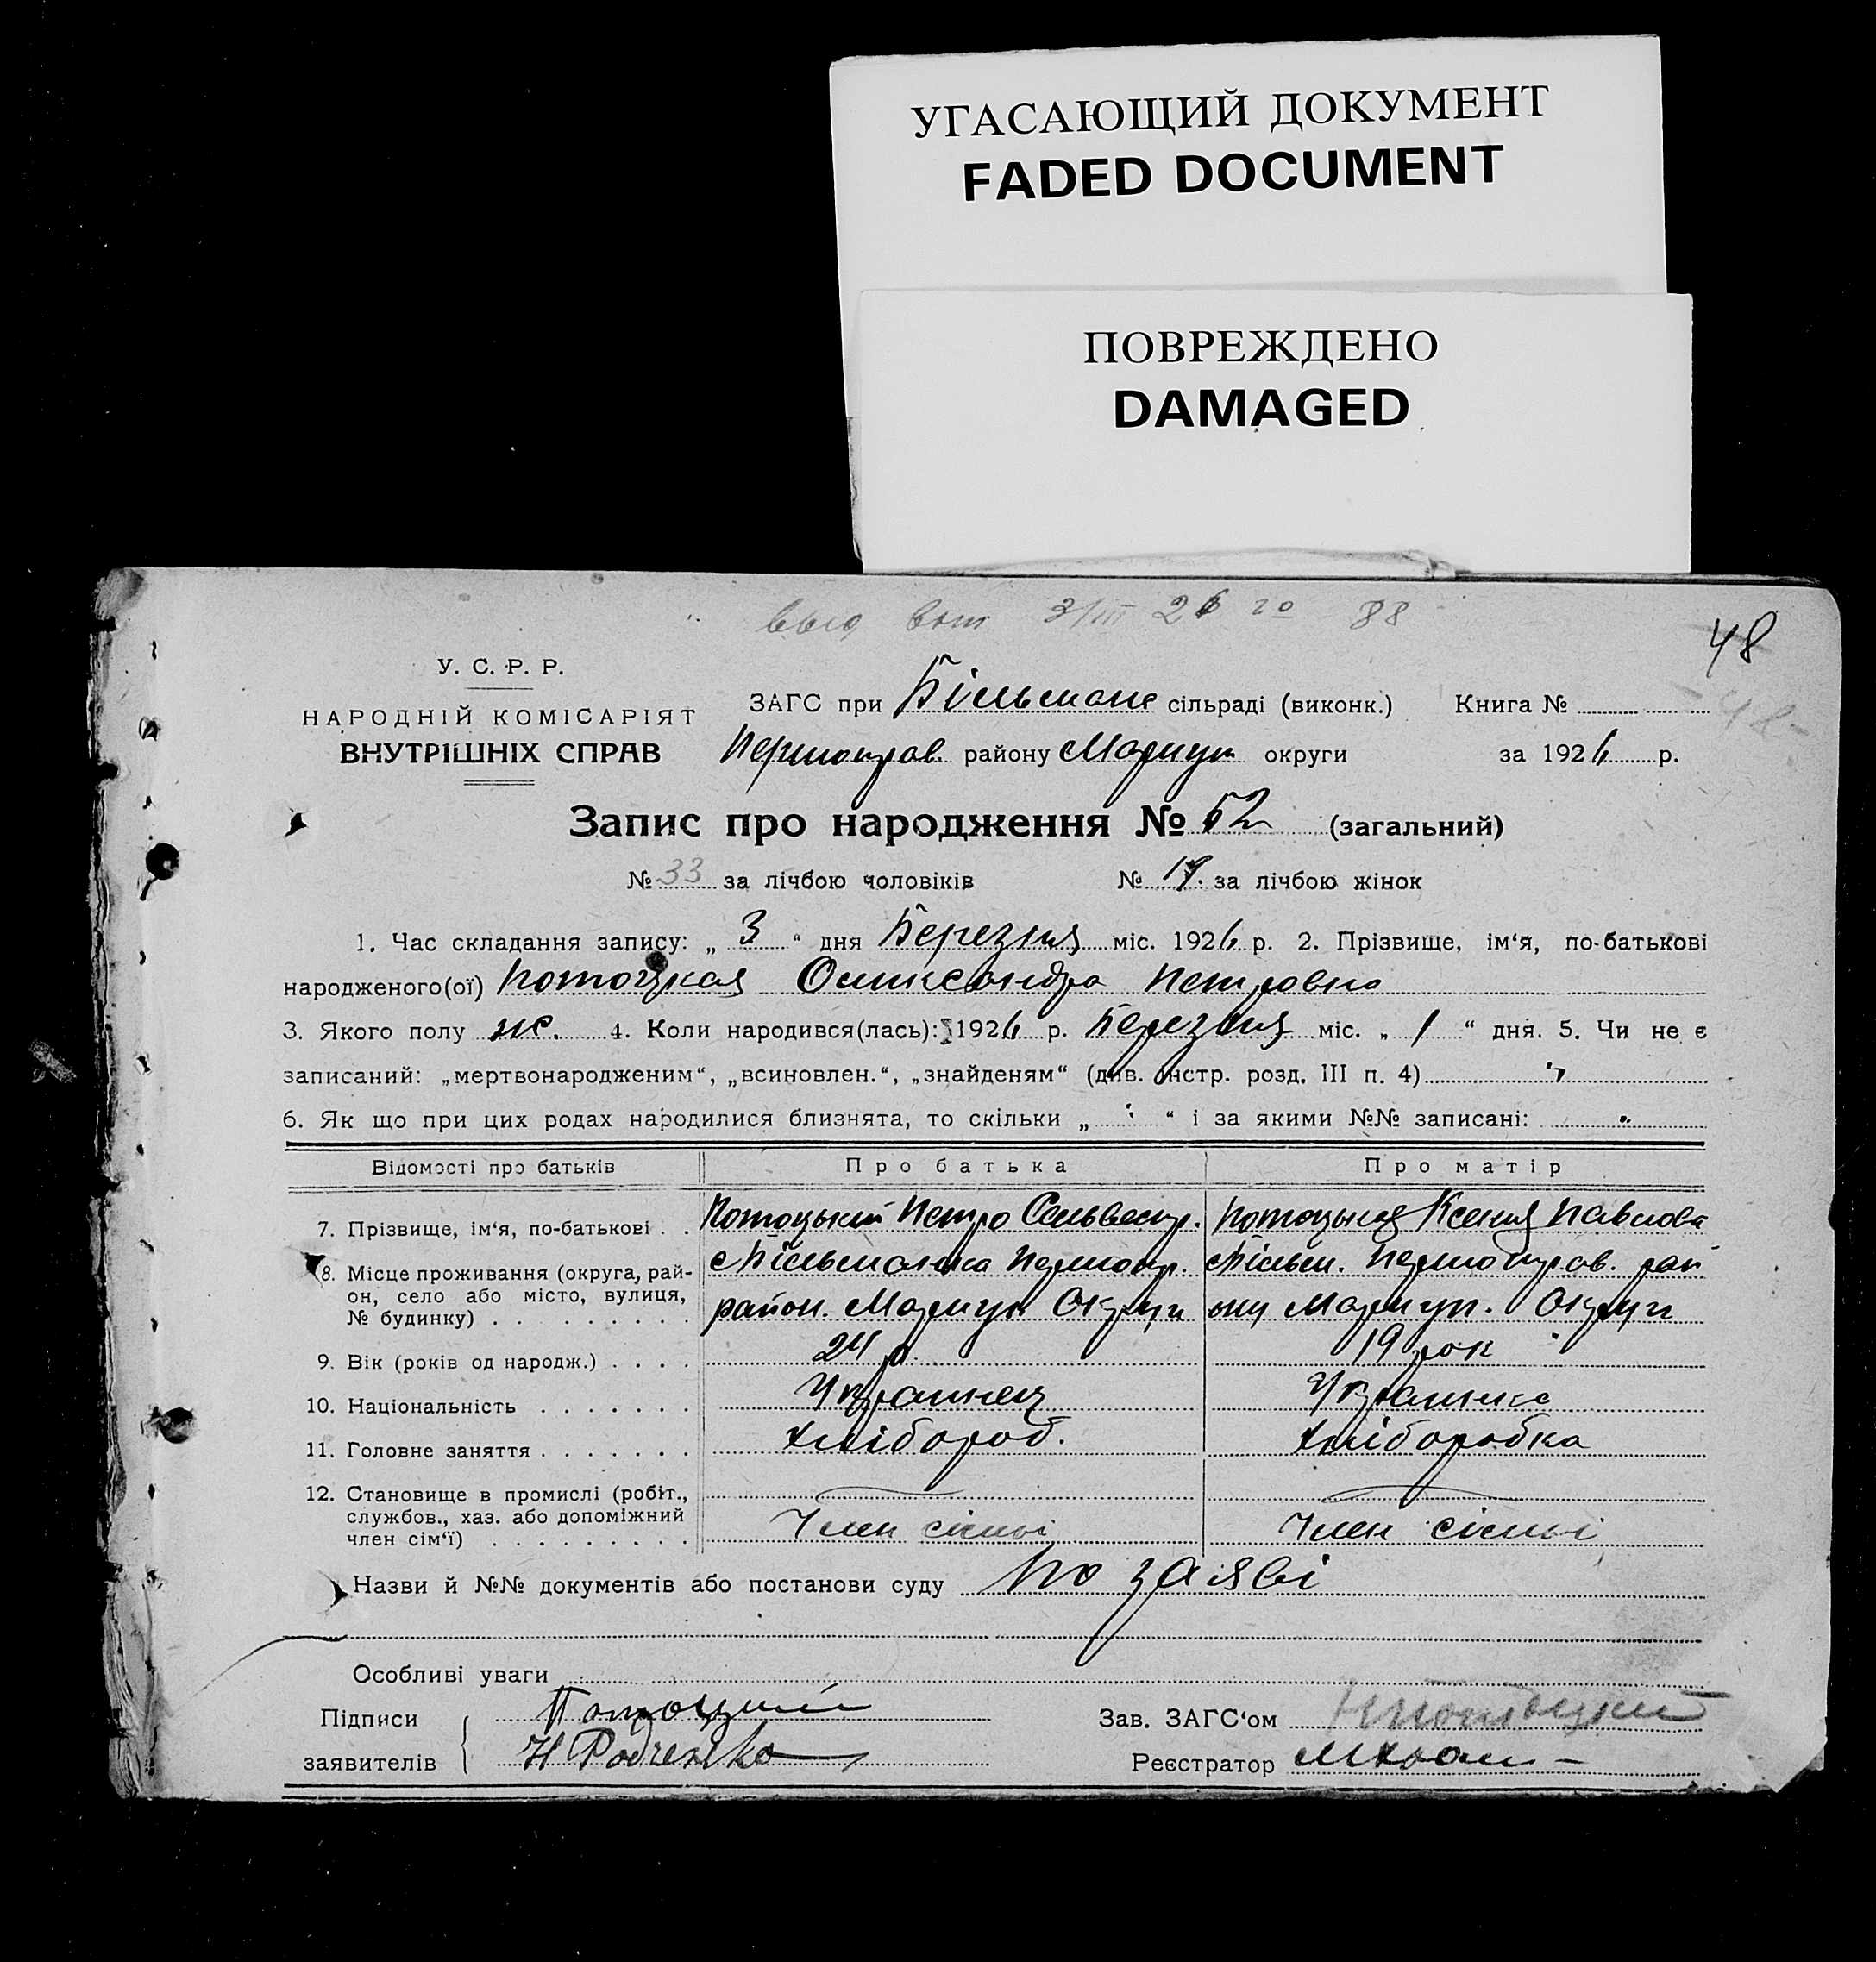 УГАСАЮЩИЙ ДОКУМЕНТ
FADED DOCUMENT
ПОВРЕЖДЕНО
DAMAGED
3/III 26 го 88
48
У. С. Р. Р.
НАРОДНІЙ КОМІСАРІЯТ
ВНУТРІШНІХ СПРАВ
ЗАГС при Більманс сільраді (виконк.) Книга №
Першотрав. району Маріуп округи за 1926 р.
Запис про народження № 52 (загальний)
№ 33 за лічбою чоловіків № 19. за лічбою жінок
1. Час складання запису: „ 3 “ дня Березня міс. 1926 р. 2. Прізвище, ім‘я, по-батькові
народженого(ої) Потоцкая Олександра Петровна
3. Якого полу ж. 4. Коли народився(лась): 1926 р. Березня міс. „ 1 “ дня. 5. Чи не є
записаний: „мертвонародженим“, „всиновлен.“, „знайденям“ (див. інстр. розд. III п. 4) "
6. Як що при цих родах народилися близнята, то скільки „ " “ і за якими №№ записані: "
Відомості про батьків Про батька Про матір
7. Прізвище, ім‘я, по-батькові . . Потоцький Петро Сельвестр. Потоцька Ксения Павлова
8. Місце проживання (округа, рай-
он, село або місто, вулиця,
№ будинку) . . . . . . . . .
с Більманка Першотр.
район. Маріуп Округи
с Більм. Першотрав. рай
ону Маріуп. Округи
9. Вік (років од народж.) . . . . 24 р. 19 рок
10. Національність . . . . . . . Українец Українка
11. Головне заняття . . . . . . . Хлібороб. Хліборобка
12. Становище в промислі (робіт.,
службов., хаз. або допоміжний
член сім‘ї) . . . . . . . . .
Член сімьі Член сімьі
Назви й №№ документів або постанови суду По заяві
Особливі уваги
Підписи Потоцкий Зав. ЗАГС‘ом
заявителів Н Родченко Реєстратор